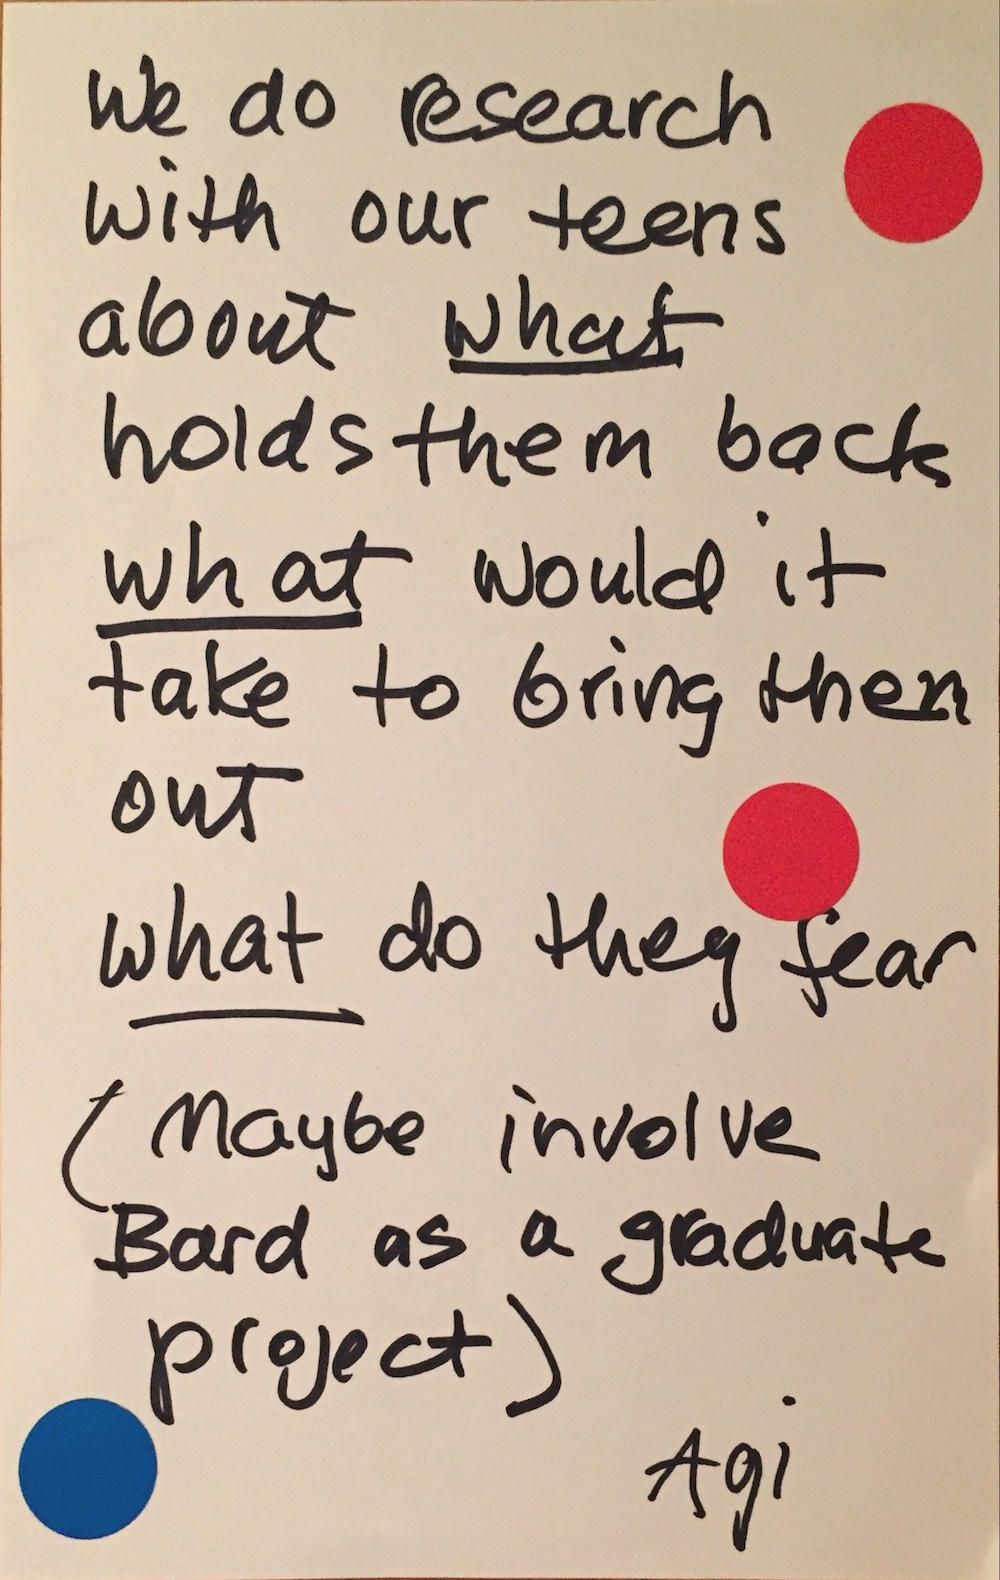 We do research
with our teens
about what
holds them back
what would it
take to bring them
out
what do they fear
(Maybe involve
Bard as a graduate
project)
Agi